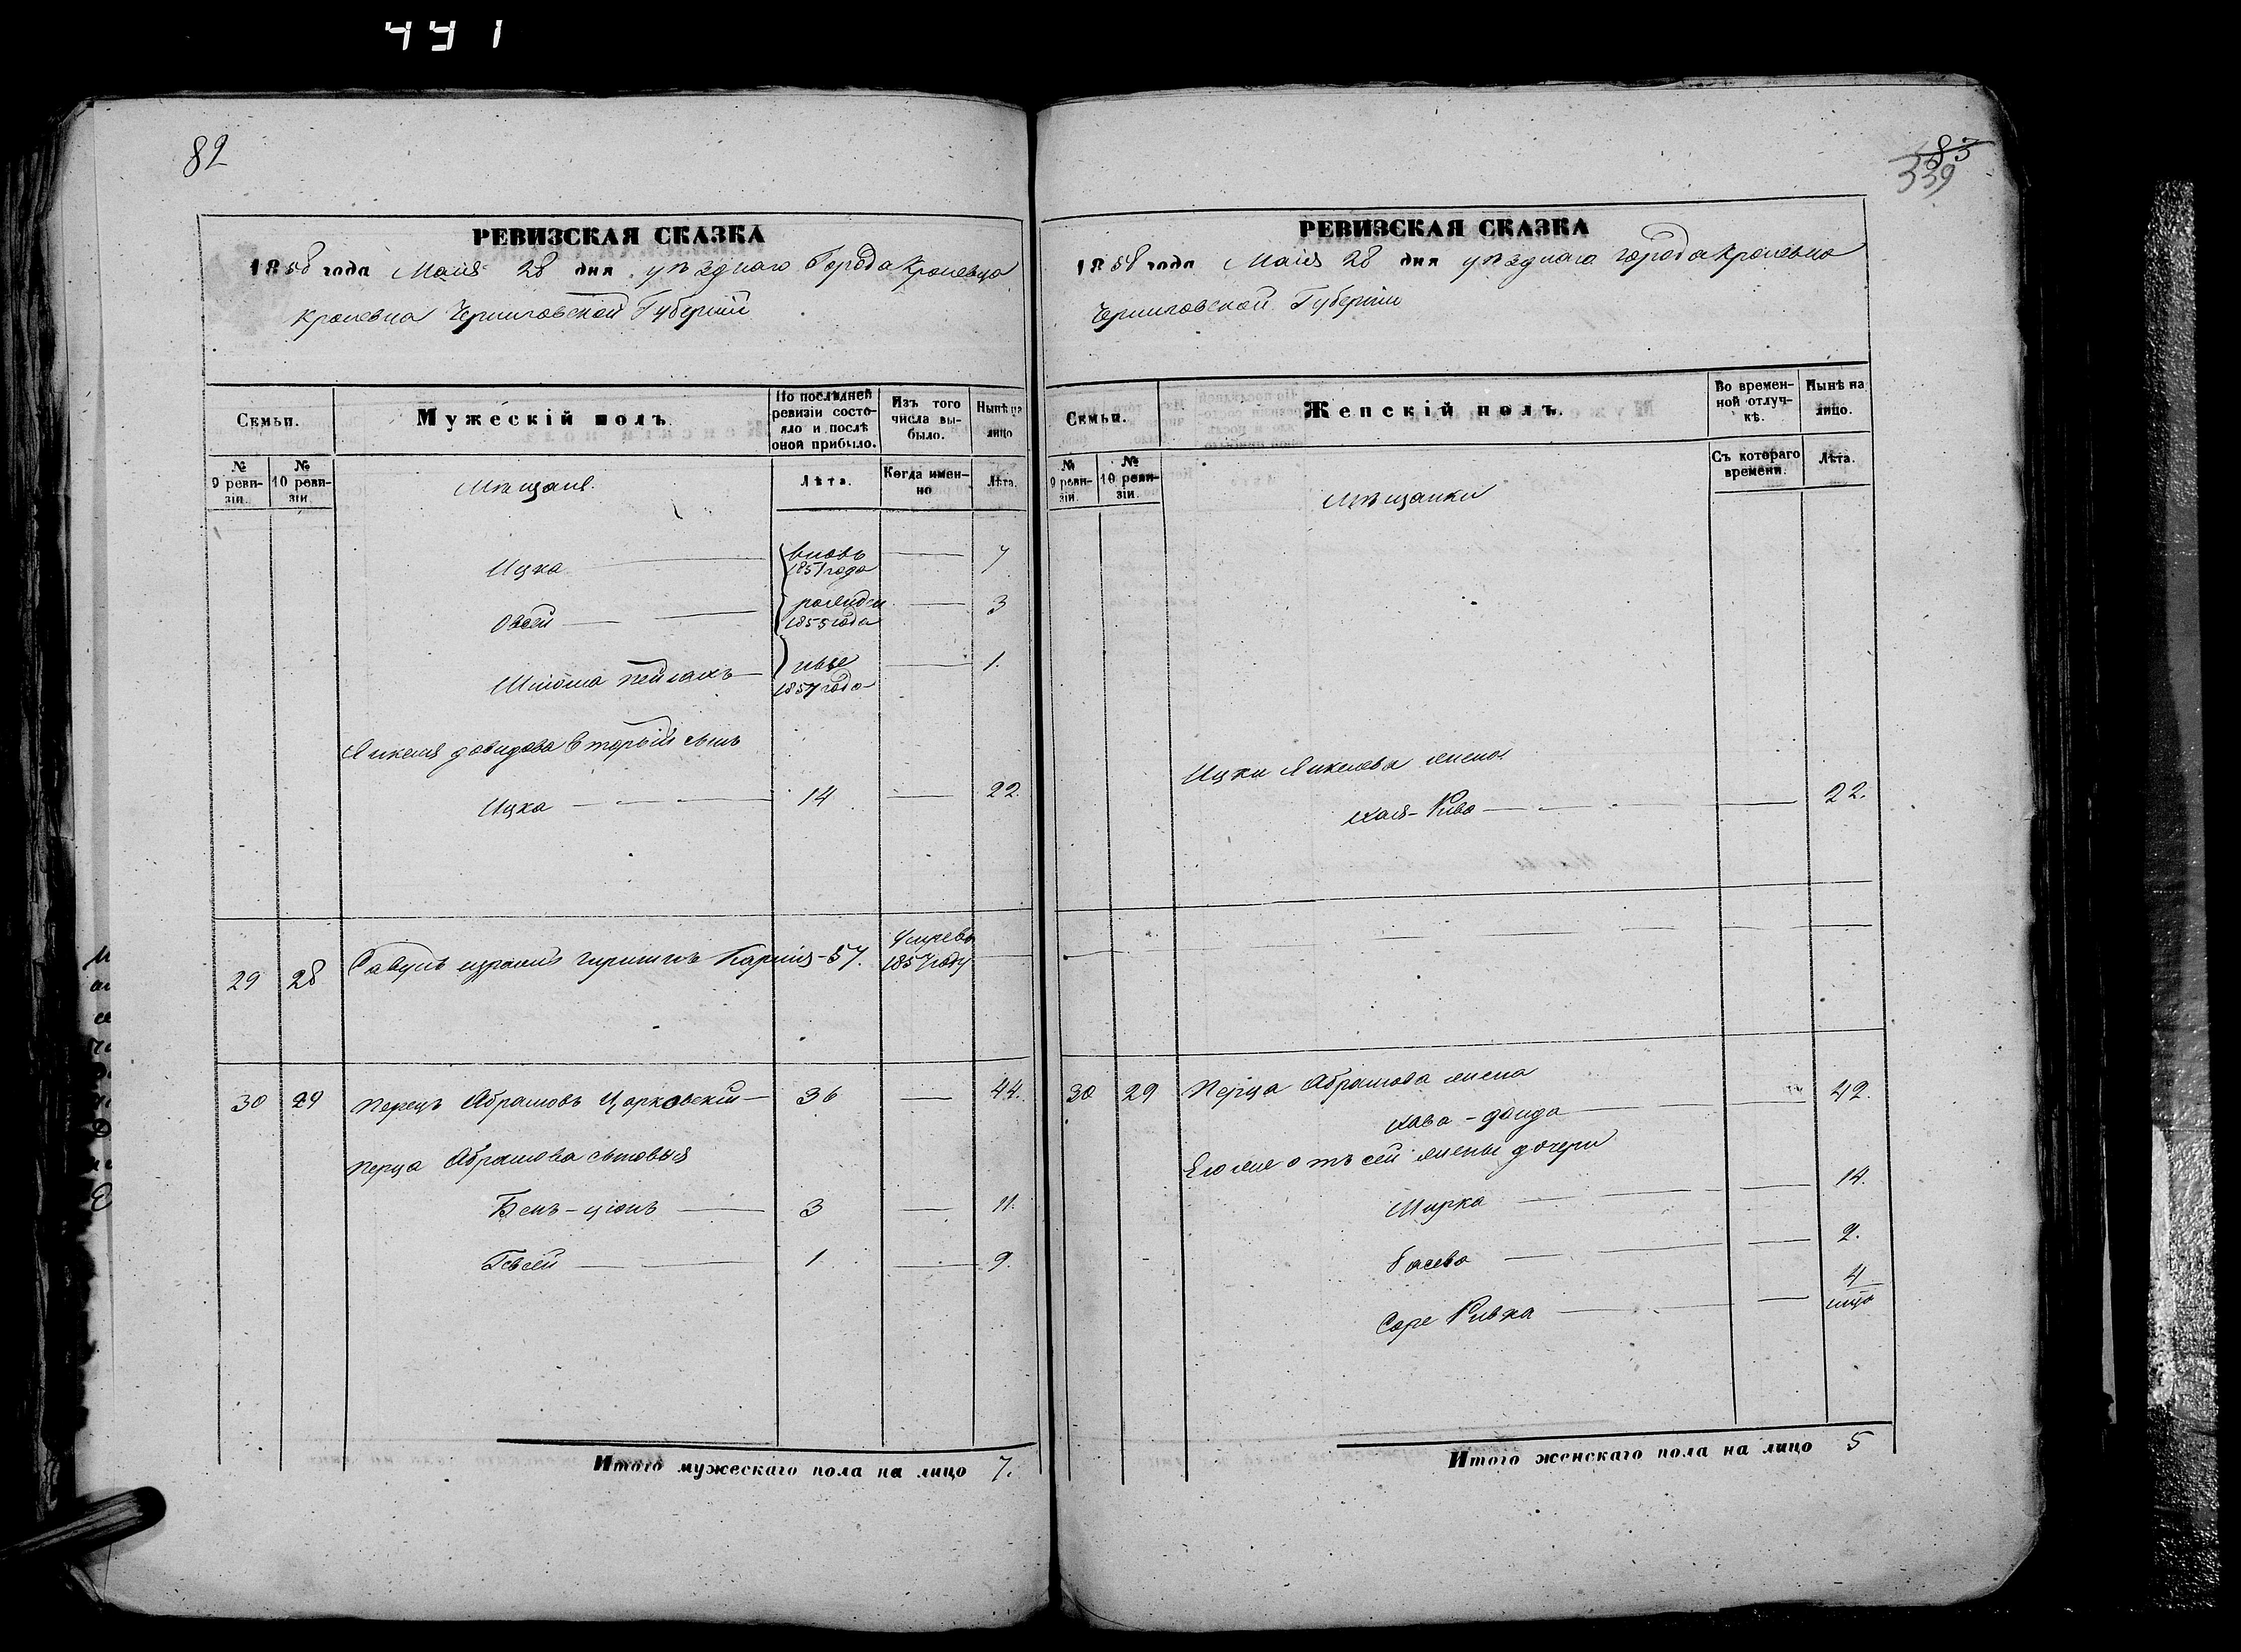 441
82
РЕВИЗСКАЯ СКАЗКА
1858 года Маія 28 дня уѣзднаго Города Кролевца
Кролевца Черниговской Губерніи
Семьи.
Мужескій полъ.
По послѣдней ревизіи состояло и послѣ оной прибыло.
Изъ того числа выбыло.
Нынѣ на лицо
№ 9 ревизіи.
№ 10 ревизіи.
Мѣщане.
Лѣта.
Когда именно
Лѣта.
Ицка вновь 1851 года 7
Овсей рожден 1855 года 3
Шліома 1857 года 1.
Янкеля Давидова вторый сынъ
Ицка 14 22.
29 28 57. Умре въ 1857 году
30 29 Перецъ Абрамовъ Царковскій 36 44.
Перца Абрамова сыновья
Бенъ-ціонъ 3 11.
Евсей 1 9.
Итого мужескаго пола на лицо 7.
83
339
РЕВИЗСКАЯ СКАЗКА
1858 года Маія 28 дня уѣзднаго города Кролевца
Черниговской Губерніи
Семьи.
Женскій полъ.
Во временной отлучкѣ.
Нынѣ на лицо.
№ 9 ревизіи.
№ 10 ревизіи.
Мѣщанки
Съ котораго времени.
Лѣта.
Ицки Янкелева жена
Хая-Рива 22.
30 29 Перца Абрамова жена
Хава-Доида 42.
Его же отъ сей жены дочери
Мирка 14.
Басева 9.
Соре Ривка 4
Итого женскаго пола на лицо 5